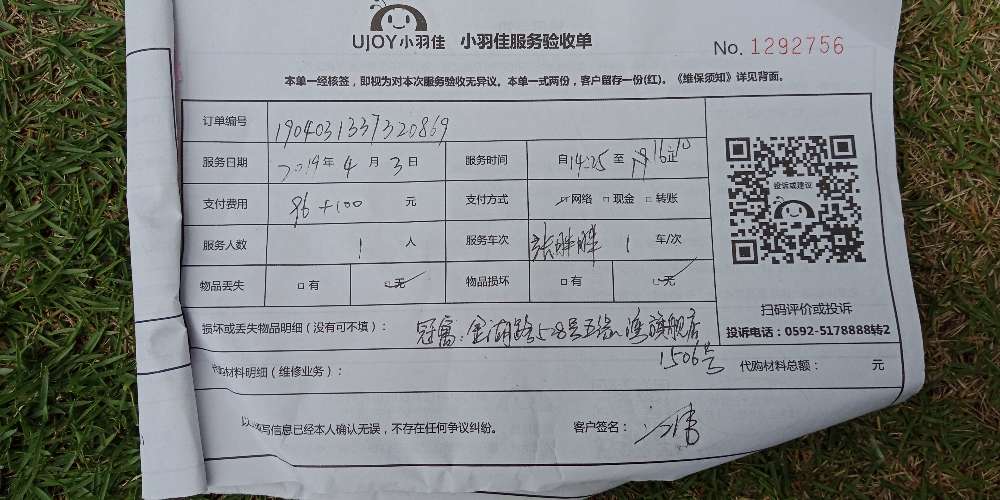 UJOY小羽佳 小羽佳服务验收单
No. 1292756
本单一经核签，即视为对本次服务验收无异议。本单一式两份，客户留存一份(红)。《维保须知》详见背面。
订单编号 1904031337320869
服务日期 2019年 4 月 3 日 服务时间 自14:25 至
支付费用 96+100 元 支付方式 网络 现金 转账
服务人数 1 人 服务车次 张胖胖 1 车/次
物品丢失 有 无 物品损坏 有 无
投诉或建议
扫码评价或投诉
投诉电话：0592-5178888转2
损坏或丢失物品明细（没有可不填）： 冠寓 金湖路528号五缘湾旗舰店
1506号
材料明细（维修业务）： 代购材料总额： 元
写信息已经本人确认无误，不存在任何争议纠纷。 客户签名：